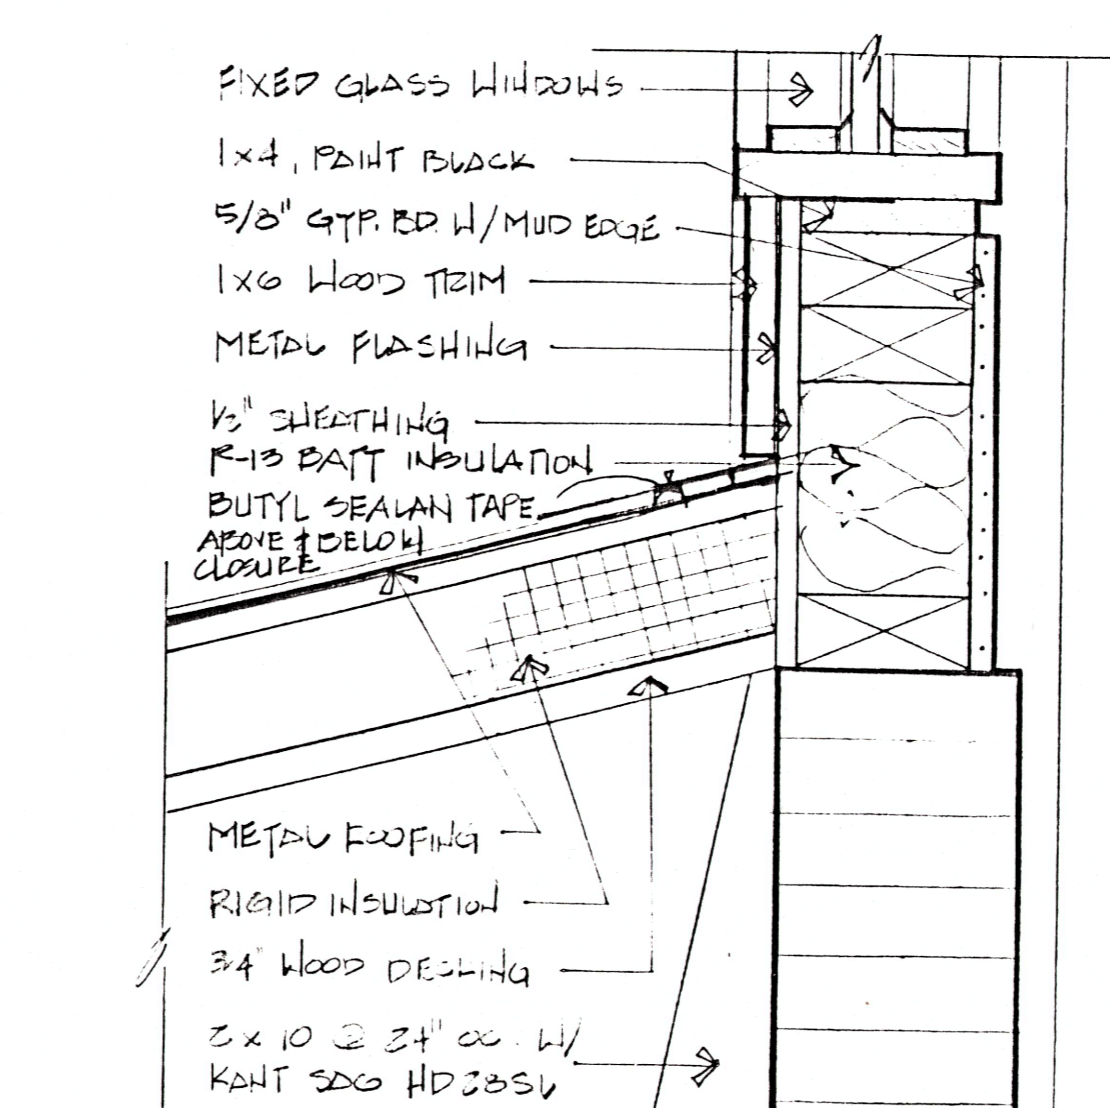 FIXED GLASS WINDOWS
1x4, PAINT BLACK
5/8" GYP. BD. W/MUD EDGE
1X6 WOOD TRIM
METAL FLASHING
1/2" SHEATHING
R-13 BATT INSULATION
BUTYL SEALAN TAPE
ABOVE & BELOW
CLOSURE
METAL ROOFING
RIGID INSULATION
3/4" WOOD DECKING
2 x 10 @ 24" OC. W/
KANT SAG HD28SL